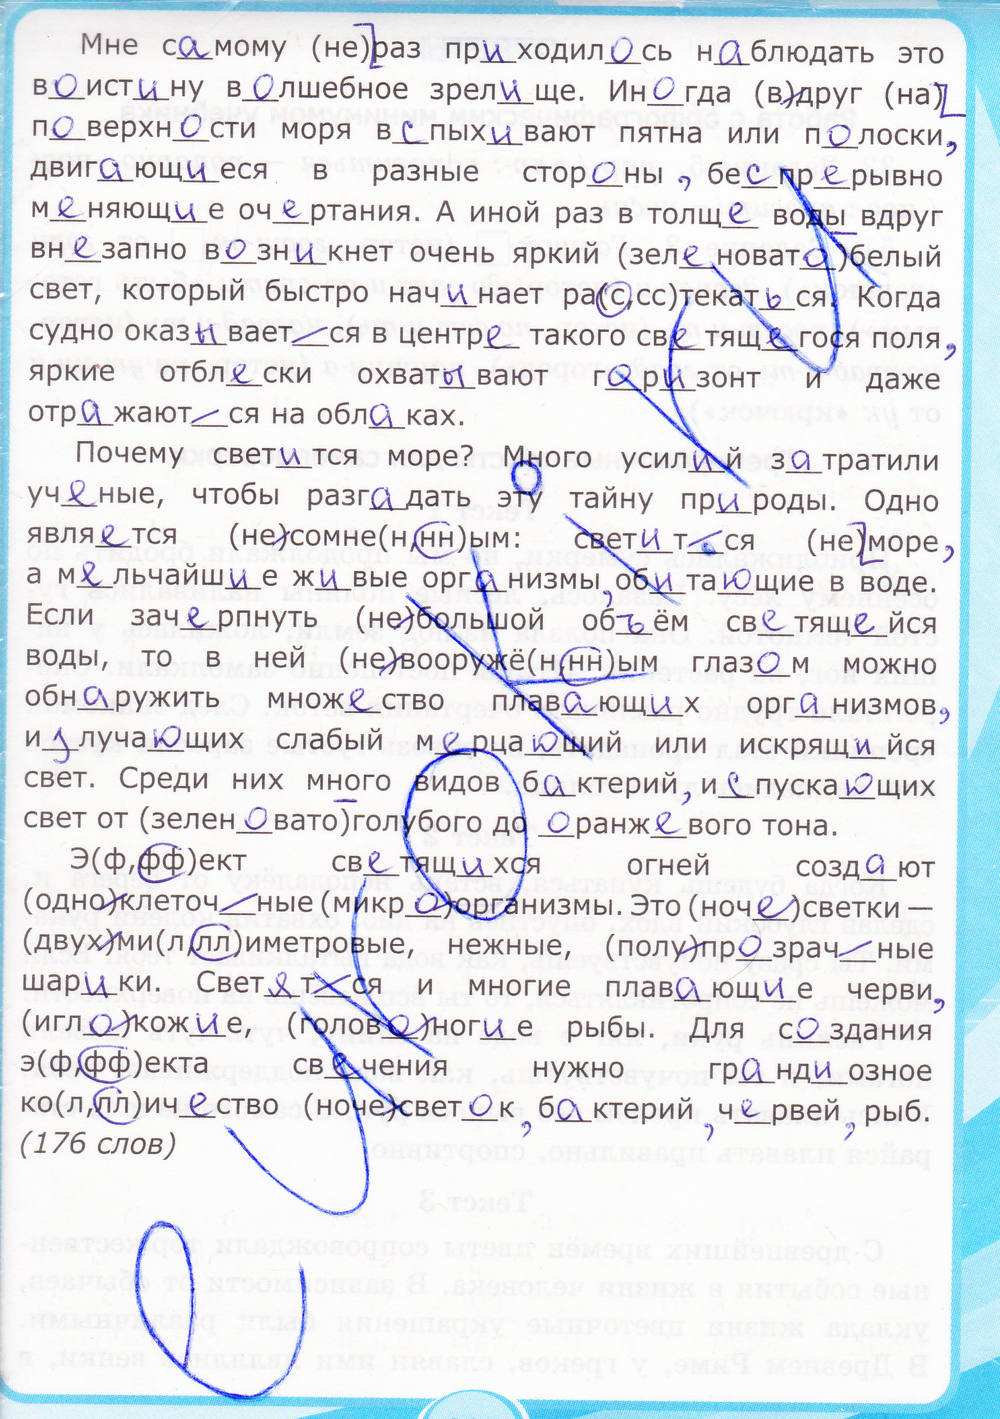 Мне самому (не) раз приходилось наблюдать это
воистину волшебное зрелище. Иногда (в)друг (на)
поверхности моря вспыхивают пятна или полоски,
двигающиеся в разные стороны, беспрерывно
меняющие очертания. А иной раз в толще воды вдруг
внезапно возникнет очень яркий (зеленовато)белый
свет, который быстро начинает ра(с,сс)текаться. Когда
судно оказивается в центре такого светящегося поля,
яркие отблески охватывают горизонт и даже
отражаются на облаках.
Почему светится море? Много усилий затратили
учёные, чтобы разгадать эту тайну природы. Одно
является (не)сомне(н,нн)ым: светится (не)море,
а мельчайшие живые организмы, обитающие в воде.
Если зачерпнуть (не)большой объём светящейся
воды, то в ней (не)вооружё(н,нн)ым глазом можно
обнаружить множество плавающих организмов,
излучающих слабый мерцающий или искрящийся
свет. Среди них много видов бактерий, испускающих
свет от (зеленовато)голубого до оранжевого тона.
Э(ф,фф)ект светящихся огней создают
(одно)клеточные (микро)организмы. Это (ноче)светки —
(двух)ми(л,лл)иметровые, нежные, (полу)прозрачные
шарики. Светятся и многие плавающие черви,
(игло)кожие, (голово)ногие рыбы. Для создания
э(ф,фф)екта свечения нужно грандиозное
ко(л,лл)ичество (ноче)светок, бактерий, червей, рыб.
(176 слов)